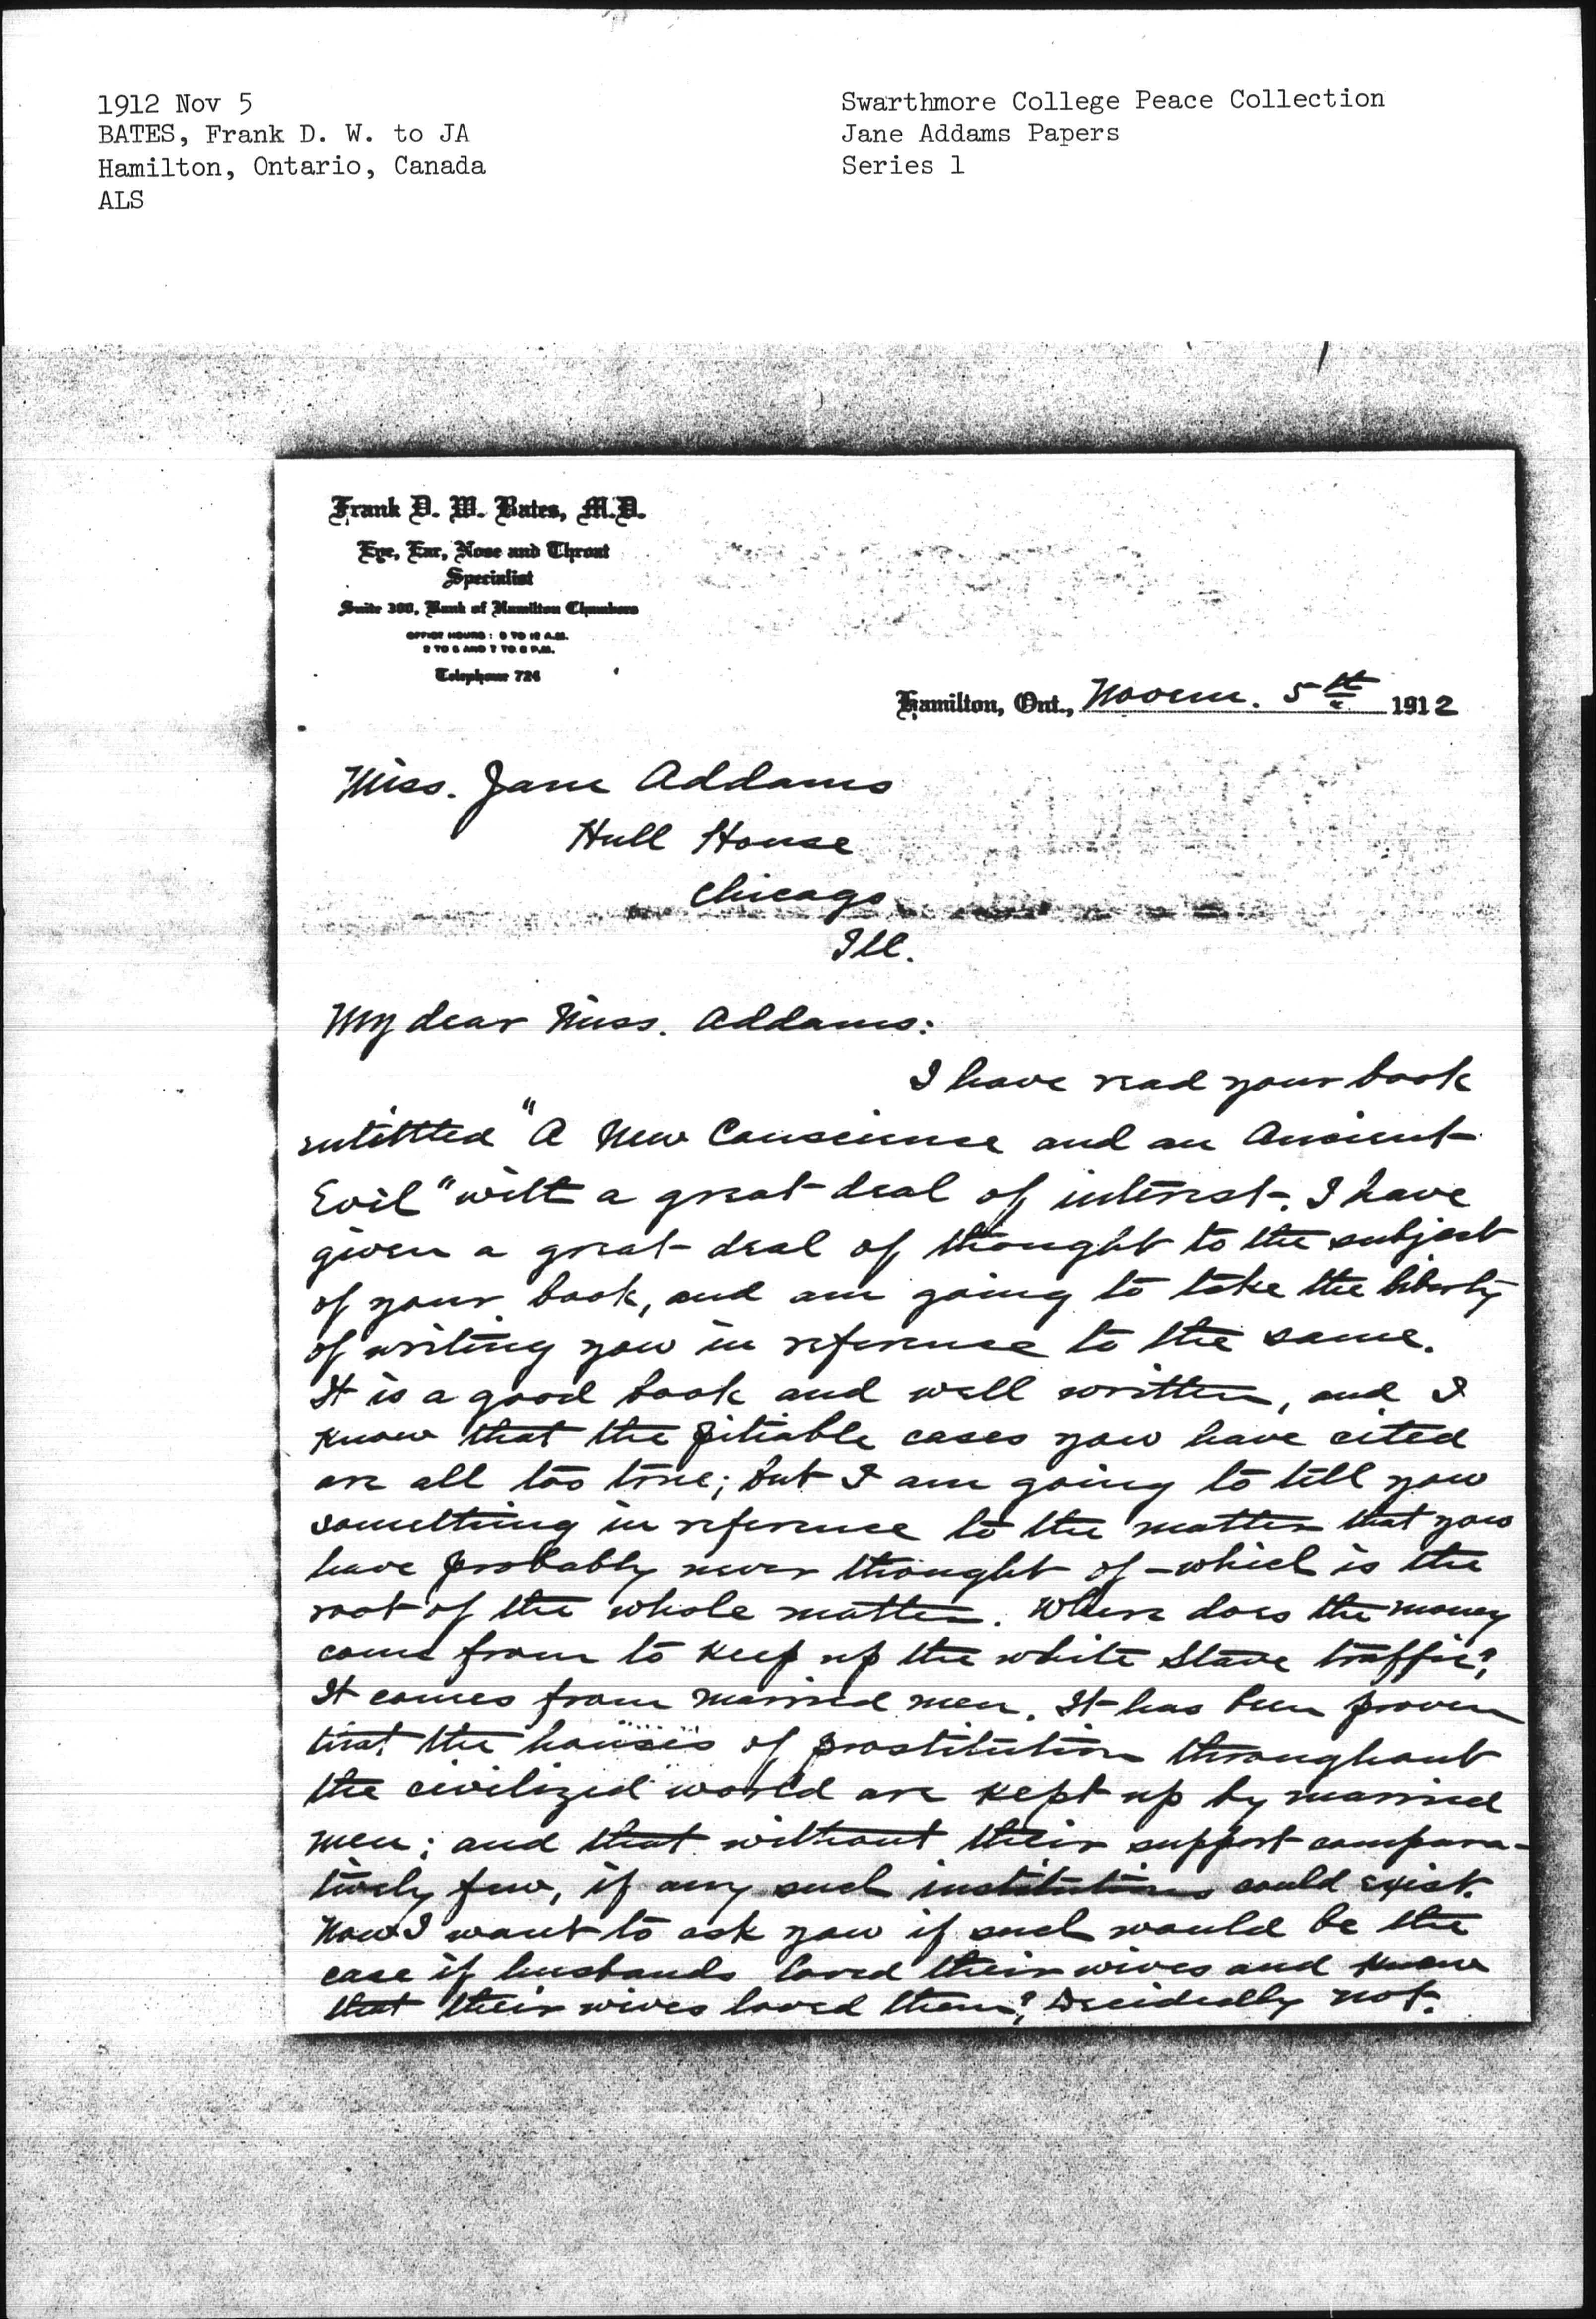 1912 Nov 5
BATES, Frank D. W. to JA
Hamilton, Ontario, Canada
ALS
Swarthmore College Peace Collection
Jane Addams Papers
Series 1
Frank D. W. Bates, M.D.
Eye, Ear, Nose and Throat
Specialist
Suite 300, Bank of Hamilton Chambers
OFFICE HOURS: 9 TO 12 A.M.
2 TO 5 AND 7 TO 8 P.M.
Telephone 724
Hamilton, Ont., Novem. 5th 1912
Miss. Jane Addams
Hull House
Chicago
Ill.
My dear Miss. Addams:
I have read your book
entittled "A New Conscience and an Ancient
Evil" with a great deal of interest. I have
given a great deal of thought to the subject
of your book, and am going to take the liberty
of writing you in reference to the same.
It is a good book and well written, and I
know that the pitiable cases you have cited
are all too true; but I am going to tell you
something in reference to the matter that you
have probably never thought of - which is the
root of the whole matter. Where does the money
come from to keep up the white slave traffic?
It comes from married men. It has been proven
that the houses of prostitution throughout
the civilized world are kept up by married
men; and that without their support compara-
tively few, if any such institutions could exist.
Now I want to ask you if such would be the
case if husbands loved their wives and knew
that their wives loved them? Decidedly not.